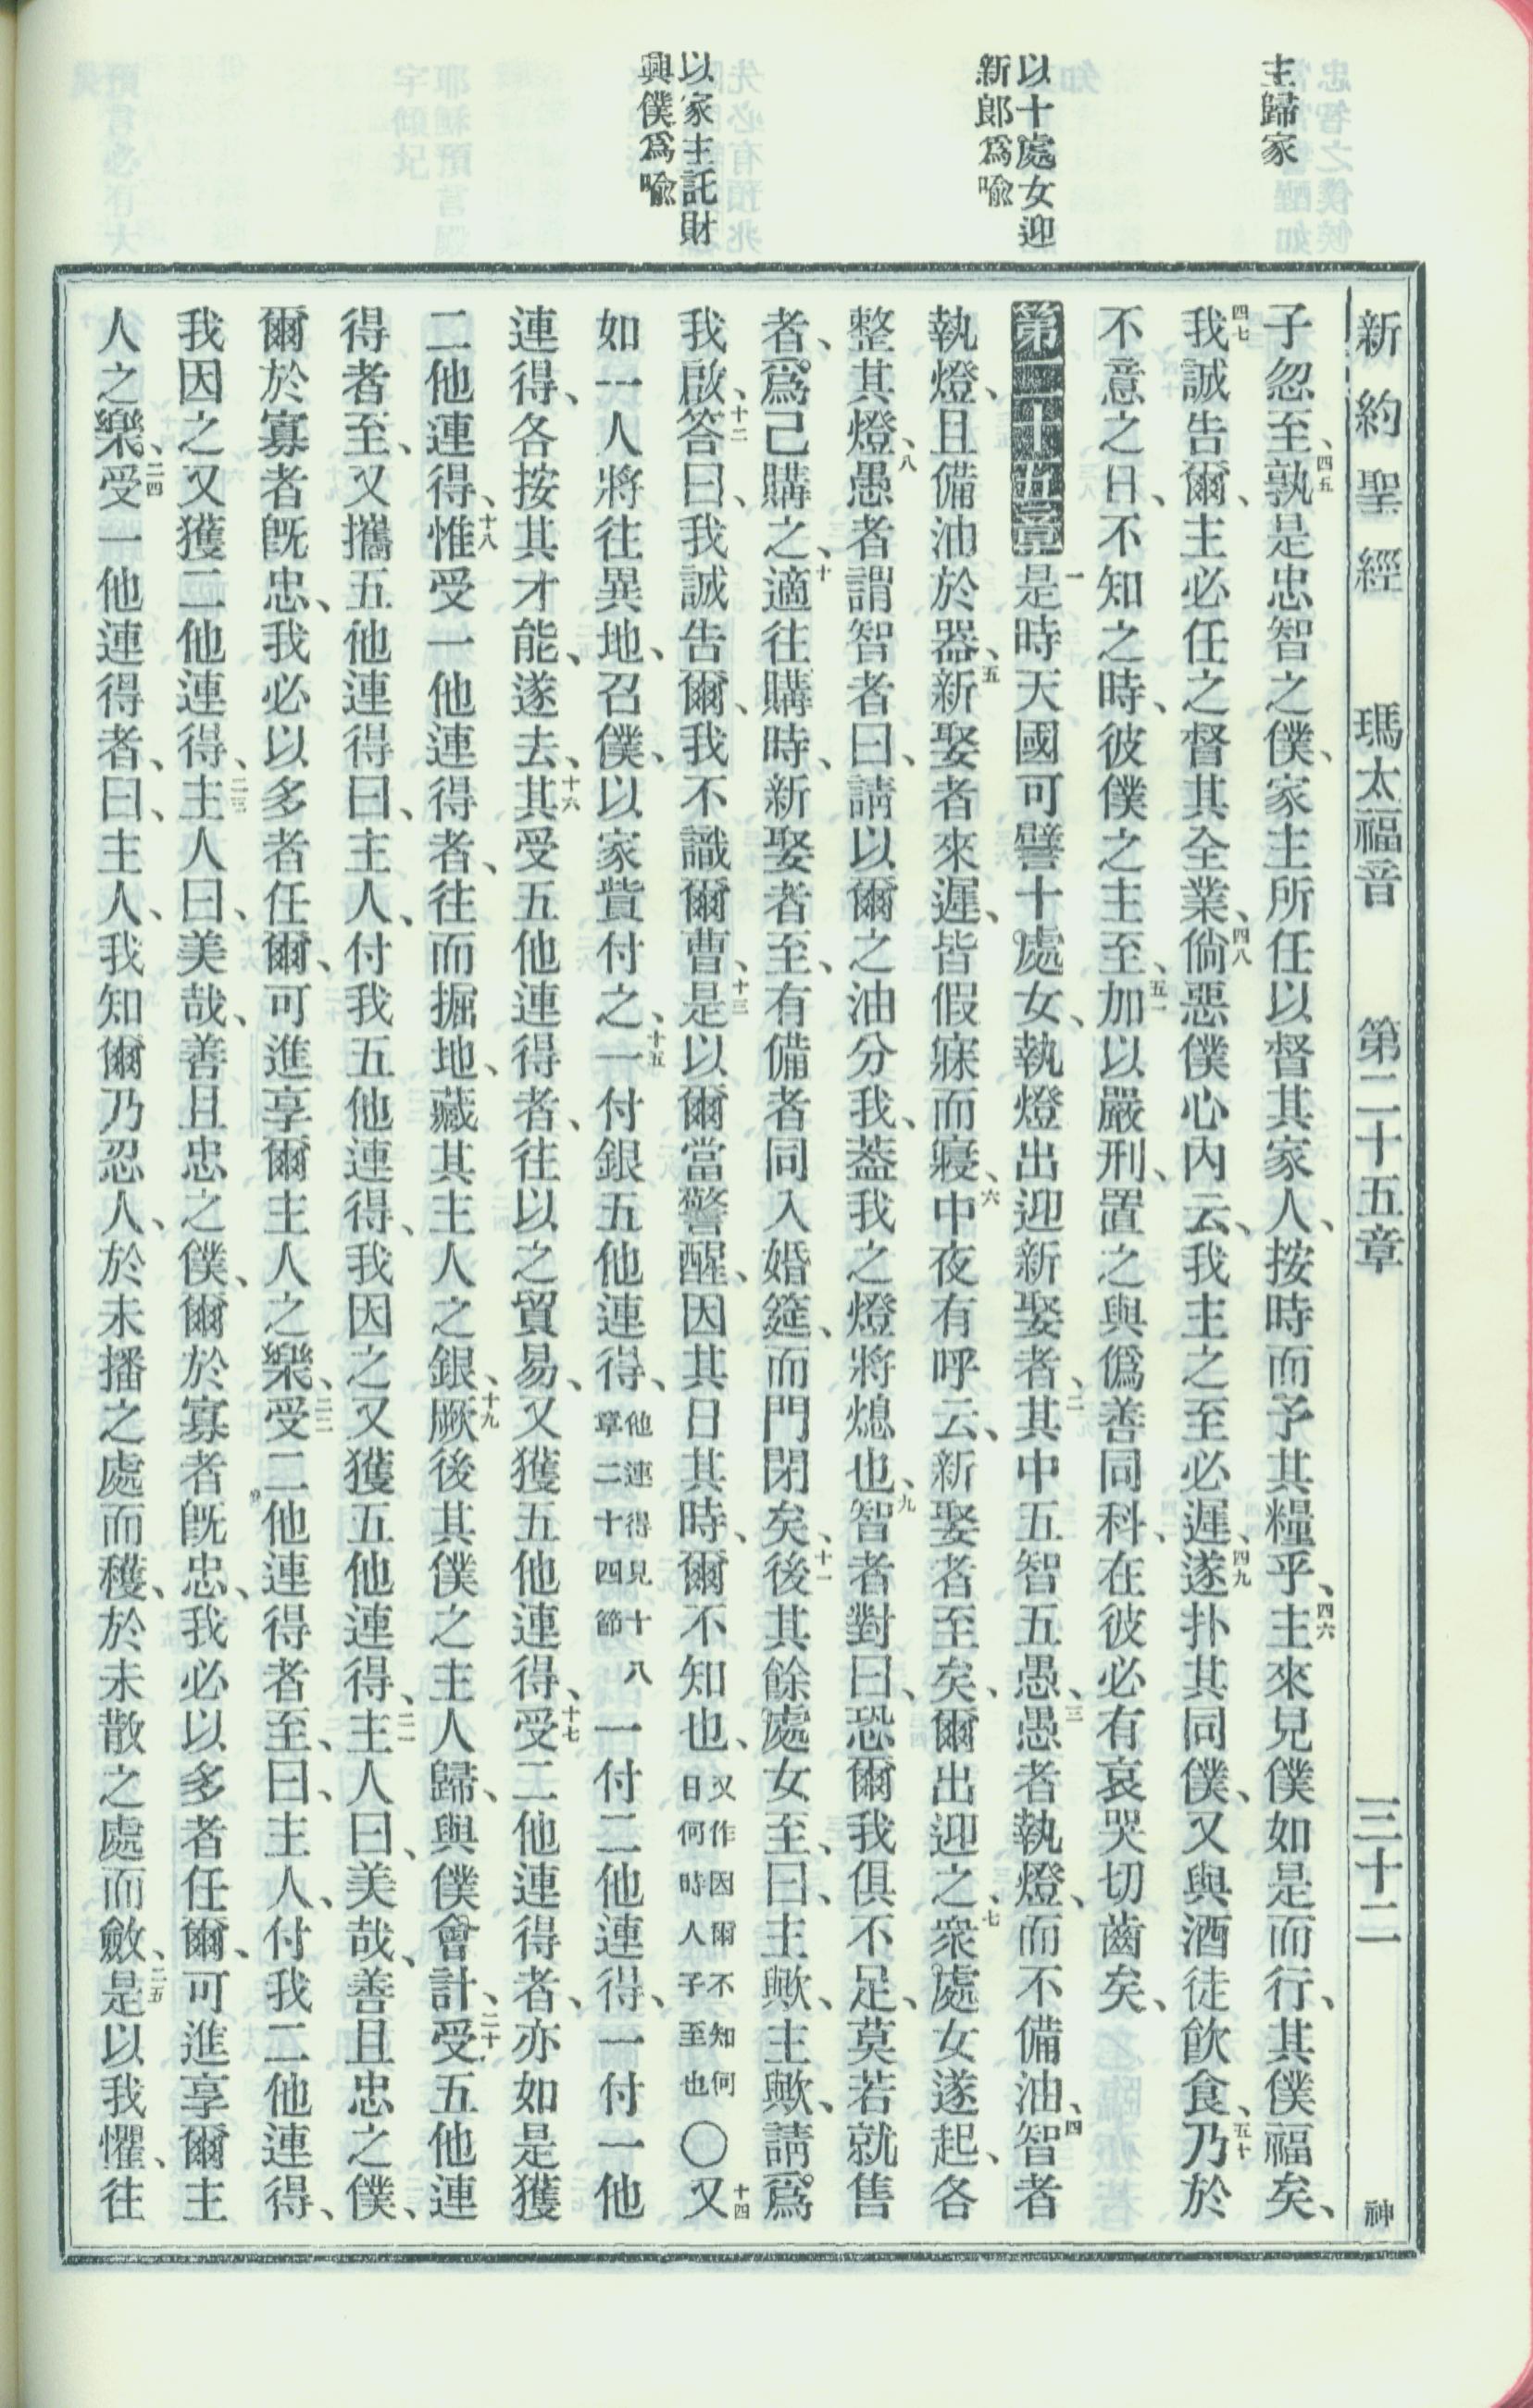 主歸家
以十處女迎
新郎爲喩
以家主託財
與僕爲喩
新約聖經 瑪太福音 第二十五章 三十二 神
子忽至、四五孰是忠智之僕、家主所任以督其家人、按時而予其糧乎、四六主來見僕如是而行、其僕福矣、
四七我誠吿爾、主必任之督其全業、四八倘惡僕心內云、我主之至必遲、四九遂扑其同僕、又與酒徒飮食、五十乃於
不意之日、不知之時、彼僕之主至、五一加以嚴刑、置之與僞善同科、在彼必有哀哭切齒矣、
第二十五章 一是時天國可譬十處女、執燈出迎新娶者、二其中五智五愚、三愚者執燈、而不備油、四智者
執燈、且備油於器、五新娶者來遲、皆假寐而寢、六中夜有呼云、新娶者至矣、爾出迎之、七衆處女遂起、各
整其燈、八愚者謂智者曰、請以爾之油分我、蓋我之燈將熄也、九智者對曰、恐爾我俱不足、莫若就售
者、爲己購之、十適往購時、新娶者至、有備者同入婚筵、而門閉矣、十一後其餘處女至、曰、主歟、主歟、請爲
我啟、十二答曰、我誠吿爾、我不識爾曹、十三是以爾當警醒、因其日其時、爾不知也、又作因爾不知何日何時人子至也〇十四又
如一人將往異地、召僕、以家貲付之、十五一付銀五他連得、他連得見十八章二十四節 一付二他連得、一付一他
連得、各按其才能、遂去、十六其受五他連得者、往以之貿易、又獲五他連得、十七受二他連得者、亦如是獲
二他連得、十八惟受一他連得者、往而掘地、藏其主人之銀、十九厥後其僕之主人歸、與僕會計、二十受五他連
得者至、又攜五他連得曰、主人、付我五他連得、我因之又獲五他連得、二一主人曰、美哉、善且忠之僕、
爾於寡者旣忠、我必以多者任爾、可進享爾主人之樂、二二受二他連得者至、曰、主人、付我二他連得、
我因之又獲二他連得、二三主人曰、美哉、善且忠之僕、爾於寡者旣忠、我必以多者任爾、可進享爾主
人之樂、二四受一他連得者、曰、主人、我知爾乃忍人、於未播之處而穫、於未散之處而斂、二五是以我懼、往